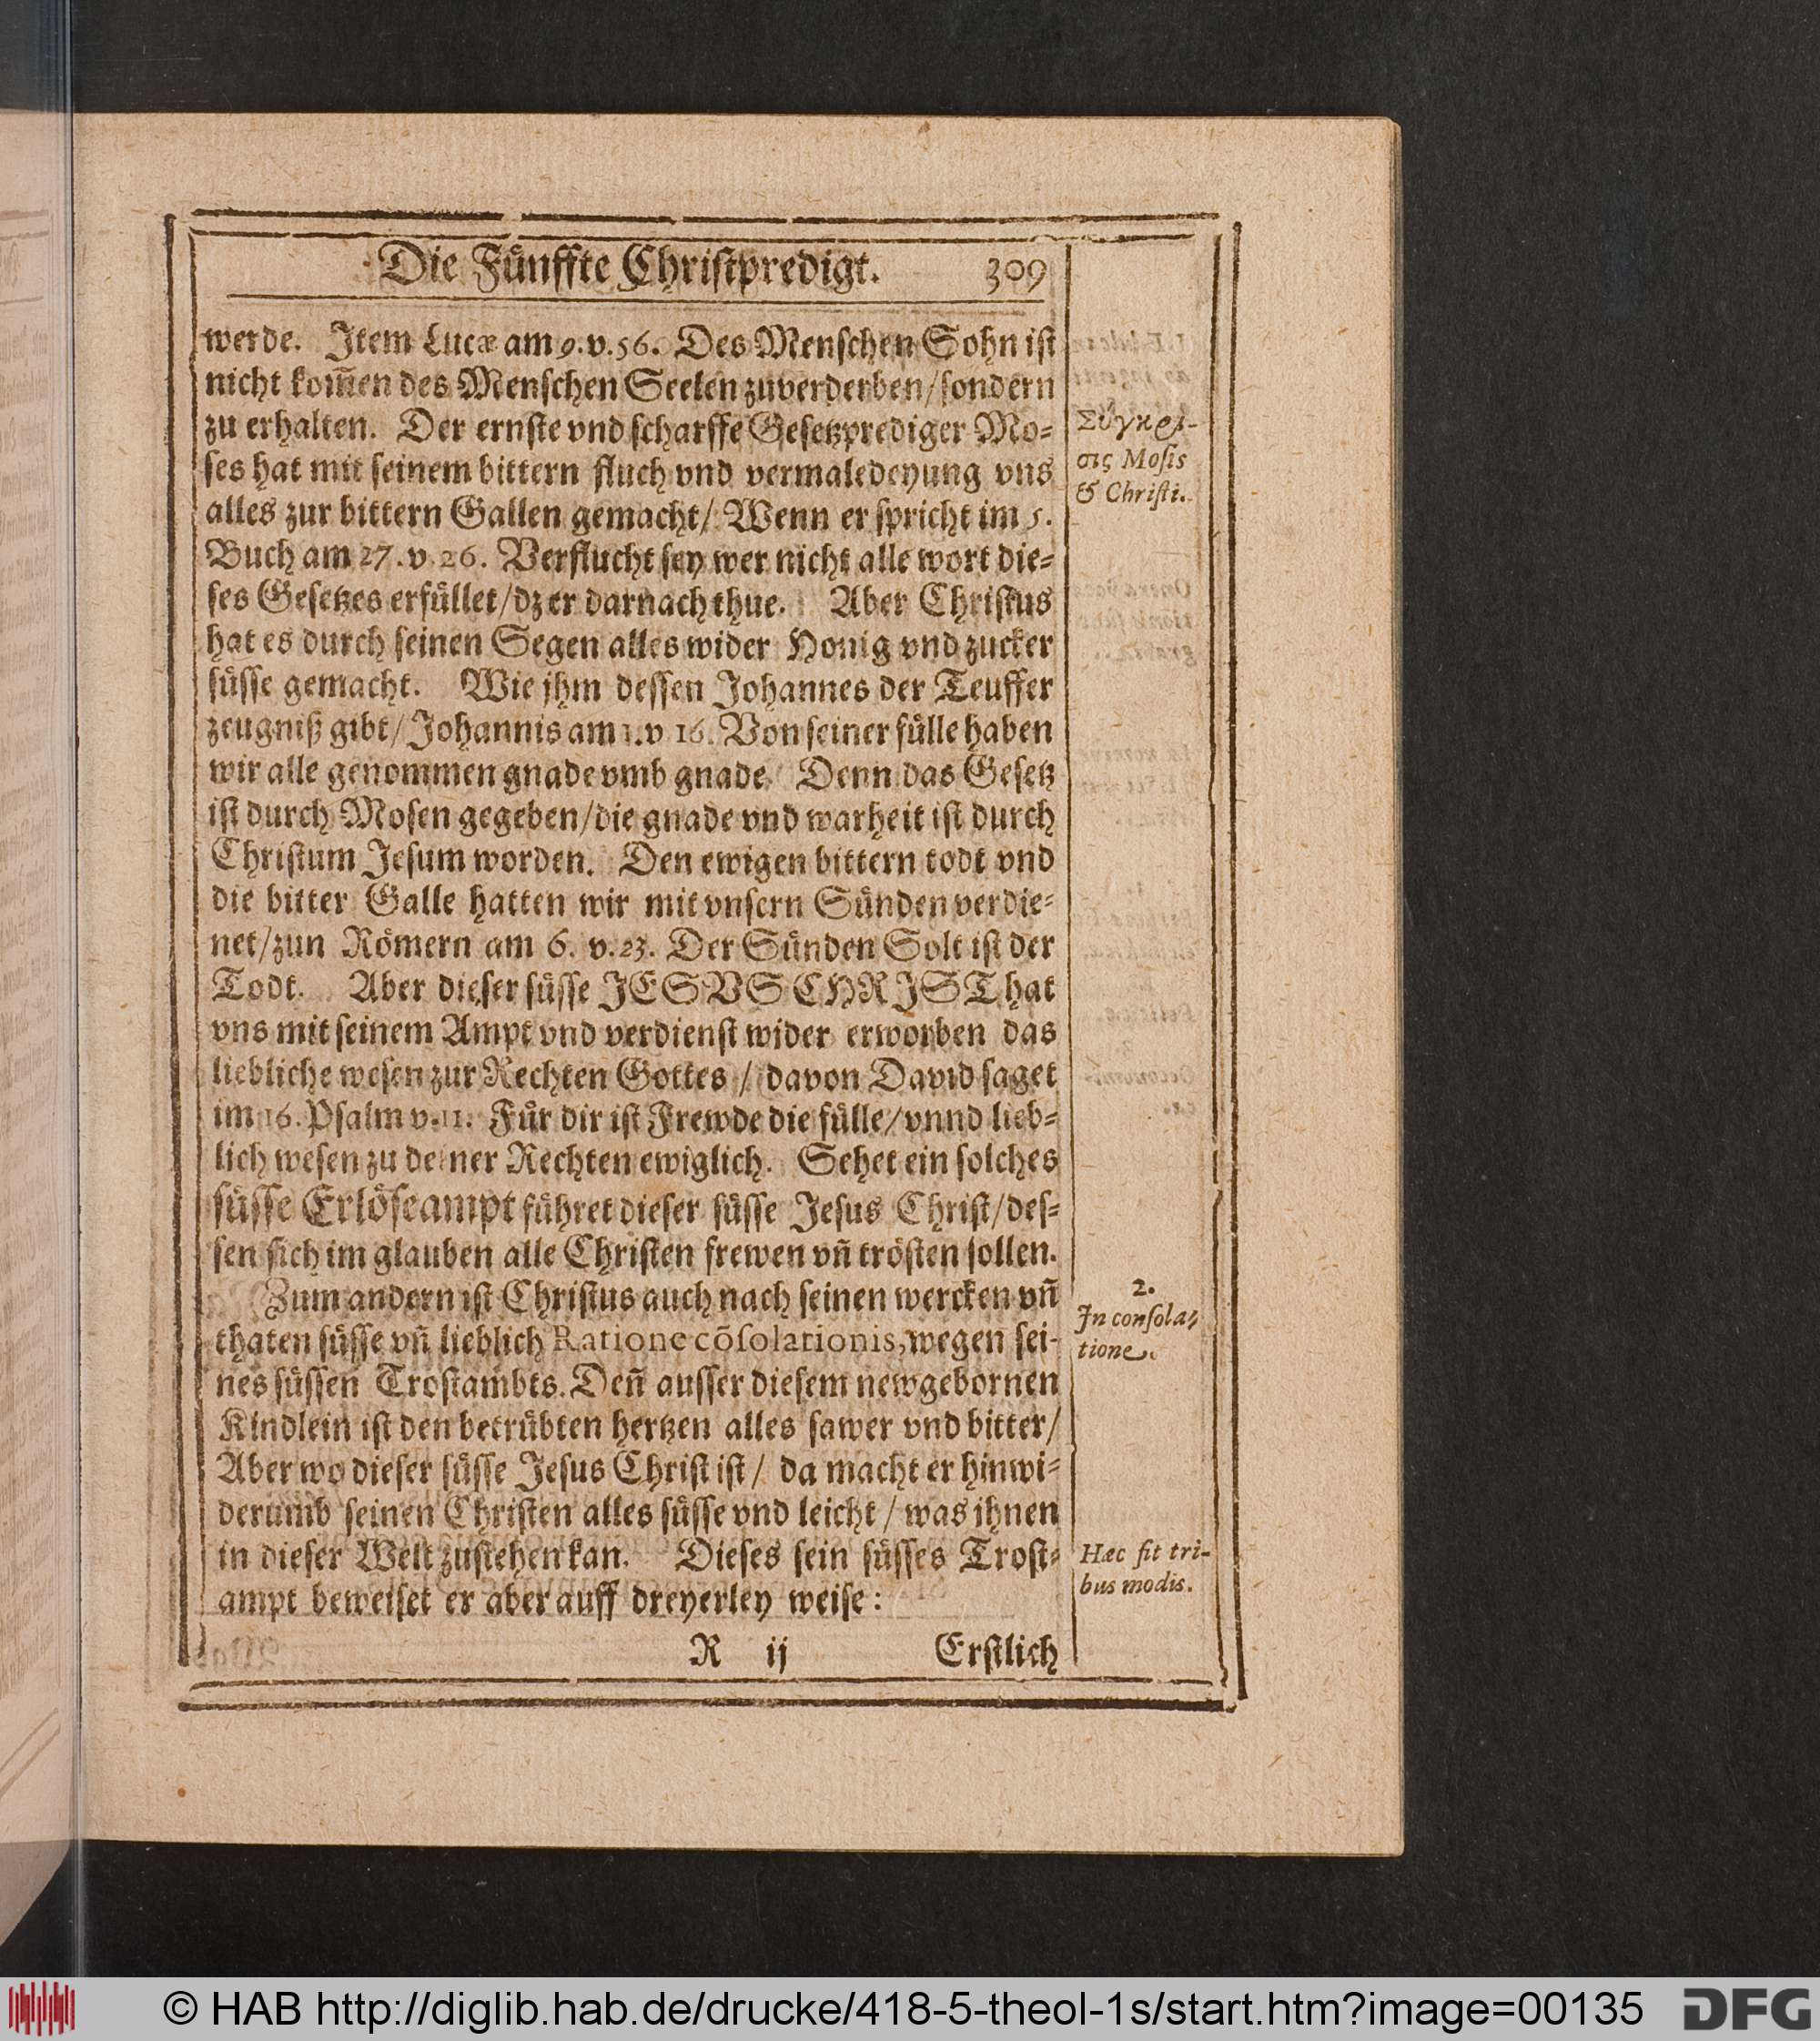 Die Fünffte Christpredigt. 309
werde. Item Lucæ am 9. v. 56. Des Menschen Sohn ist
nicht kom̃en des Menschen Seelen zuverderben/sondern
zu erhalten. Der ernste vnd scharffe Gesetzprediger Mo-
ses hat mit seinem bittern fluch vnd vermaledeyung vns
alles zur bittern Gallen gemacht/ Wenn er spricht im 5.
Buch am 27. v. 26. Verflucht sey wer nicht alle wort die-
ses Gesetzes erfüllet/dz er darnach thue. Aber Christus
hat es durch seinen Segen alles wider Honig vnd zucker
süsse gemacht. Wie jhm dessen Johannes der Teuffer
zeugniß gibt/Johannis am 1. v 16. Von seiner fülle haben
wir alle genommen gnade vmb gnade/ Denn das Gesetz
ist durch Mosen gegeben/die gnade vnd warheit ist durch
Christum Jesum worden. Den ewigen bittern todt vnd
die bitter Galle hatten wir mit vnsern Sünden verdie-
net/zun Römern am 6. v. 23. Der Sünden Solt ist der
Todt. Aber dieser süsse JESVS CHRIST hat
vns mit seinem Ampt vnd verdienst wider erworben das
liebliche wesen zur Rechten Gottes / davon David saget
im 16. Psalm v. 11. Für dir ist Frewde die fülle/vnnd lieb-
lich wesen zu deiner Rechten ewiglich. Sehet ein solches
süsse Erlöseampt führet dieser süsse Jesus Christ/des-
sen sich im glauben alle Christen frewen vñ trösten sollen.
Zum andern ist Christus auch nach seinen wercken vñ
thaten süsse vñ lieblich Ratione cõsolationis, wegen sei-
nes süssen Trostambts. Deñ ausser diesem newgebornen
Kindlein ist den betrübten hertzen alles sawer vnd bitter/
Aber wo dieser süsse Jesus Christ ist / da macht er hinwi-
derumb seinen Christen alles süsse vnd leicht / was ihnen
in dieser Welt zustehen kan. Dieses sein süsses Trost-
ampt beweiset er aber auff dreyerley weise:
R ij Erstlich
Σύγκρι-
σις Mosis
& Christi.
2.
In consola-
tione.
Hæc fit tri-
bus modis.
© HAB http://diglib.hab.de/drucke/418-5-theol-1s/start.htm?image=00135
DFG